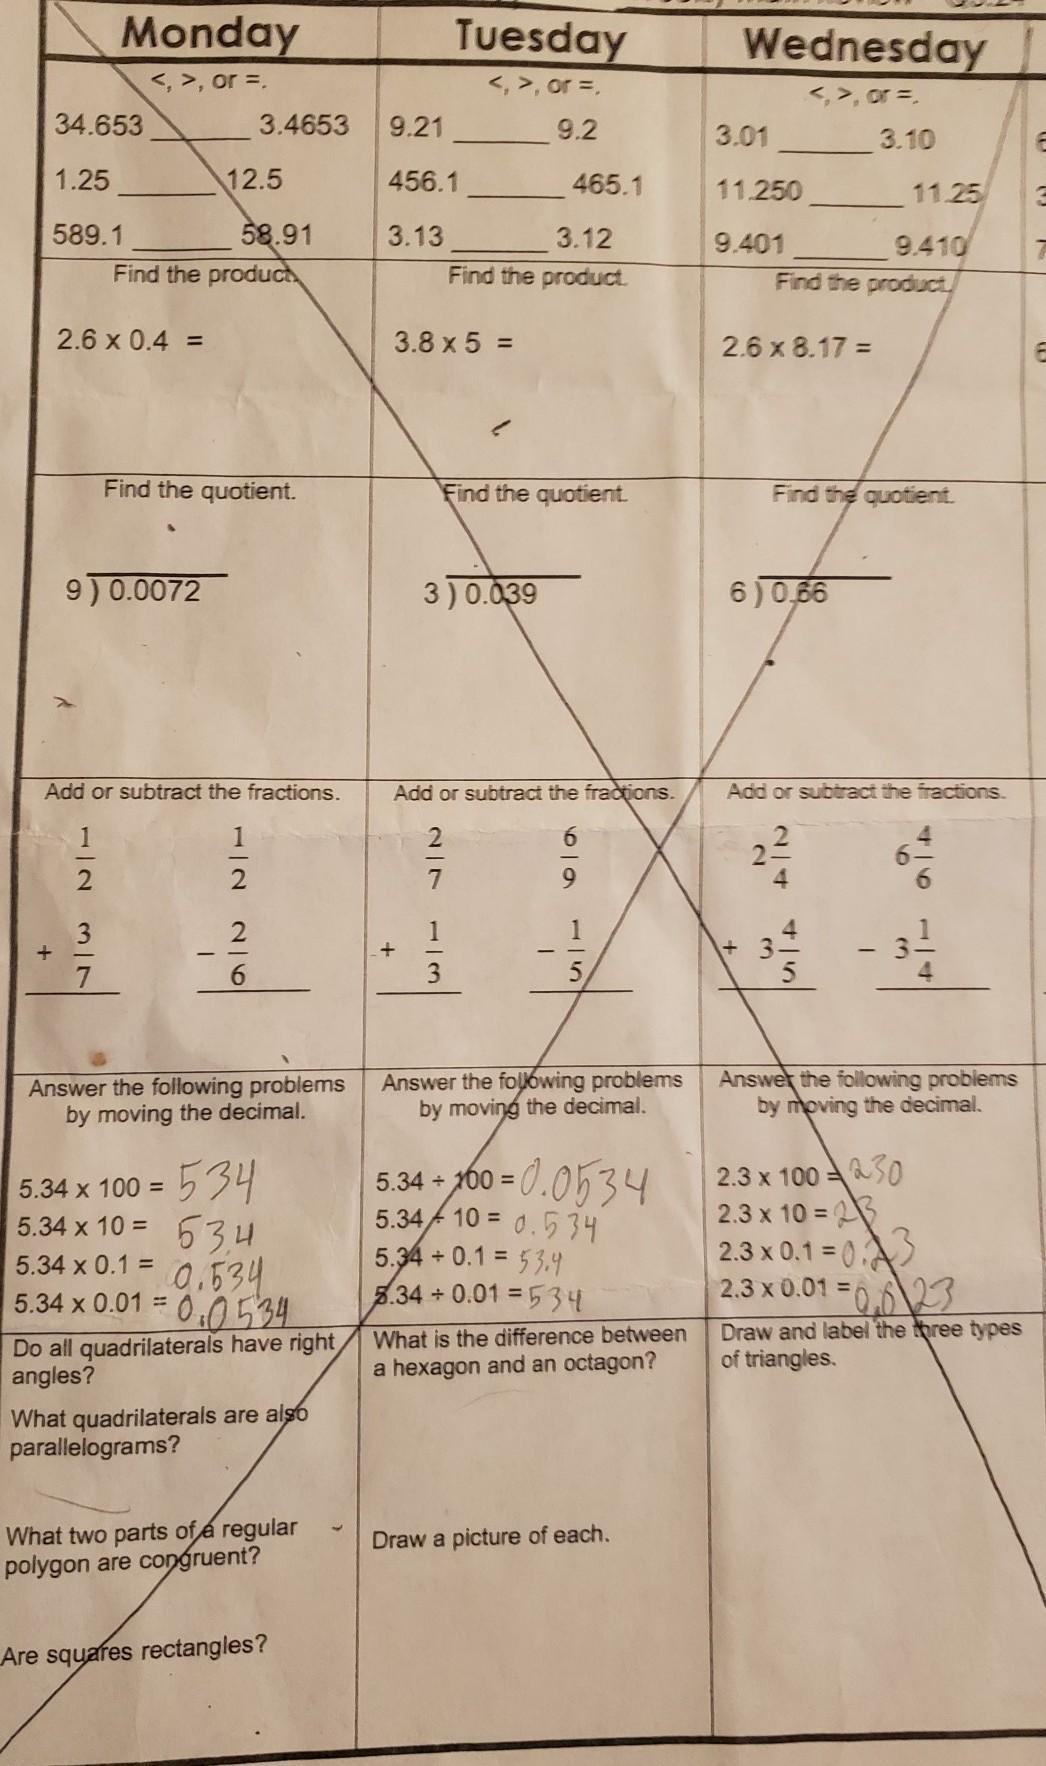 Monday
<, >, or =.
34.653 ______ 3.4653
1.25 ______ 12.5
589.1 ______ 58.91
Find the product.
2.6 x 0.4 =
Find the quotient.
9 ) 0.0072
Add or subtract the fractions.
1/2 1/2
+ 3/7 - 2/6
Answer the following problems
by moving the decimal.
5.34 x 100 = 534
5.34 x 10 = 53.4
5.34 x 0.1 = 0.534
5.34 x 0.01 = 0.0534
Do all quadrilaterals have right
angles?
What quadrilaterals are also
parallelograms?
What two parts of a regular
polygon are congruent?
Are squares rectangles?
Tuesday
<, >, or =.
9.21 ______ 9.2
456.1 ______ 465.1
3.13 ______ 3.12
Find the product.
3.8 x 5 =
Find the quotient.
3 ) 0.039
Add or subtract the fractions.
2/7 6/9
+ 1/3 - 1/5
Answer the following problems
by moving the decimal.
5.34 ÷ 100 = 0.0534
5.34 ÷ 10 = 0.534
5.34 ÷ 0.1 = 53.4
5.34 ÷ 0.01 = 534
What is the difference between
a hexagon and an octagon?
Draw a picture of each.
Wednesday
<, >, or =.
3.01 ______ 3.10
11.250 ______ 11.25
9.401 ______ 9.410
Find the product.
2.6 x 8.17 =
Find the quotient.
6 ) 0.66
Add or subtract the fractions.
2 2/4 6 4/6
+ 3 4/5 - 3 1/4
Answer the following problems
by moving the decimal.
2.3 x 100 = 230
2.3 x 10 = 23
2.3 x 0.1 = 0.23
2.3 x 0.01 = 0.023
Draw and label the three types
of triangles.